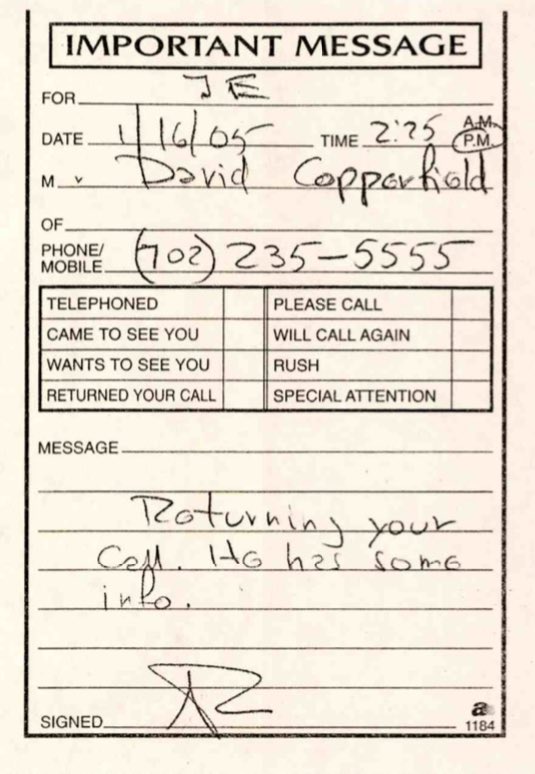 IMPORTANT MESSAGE
FOR JE
DATE 1/16/05 TIME 2:25 A.M.
P.M.
M David Copperfield
OF
PHONE/
MOBILE (702) 235-5555
TELEPHONED PLEASE CALL
CAME TO SEE YOU WILL CALL AGAIN
WANTS TO SEE YOU RUSH
RETURNED YOUR CALL SPECIAL ATTENTION
MESSAGE
Returning your
Call. He has some
info.
SIGNED
1184